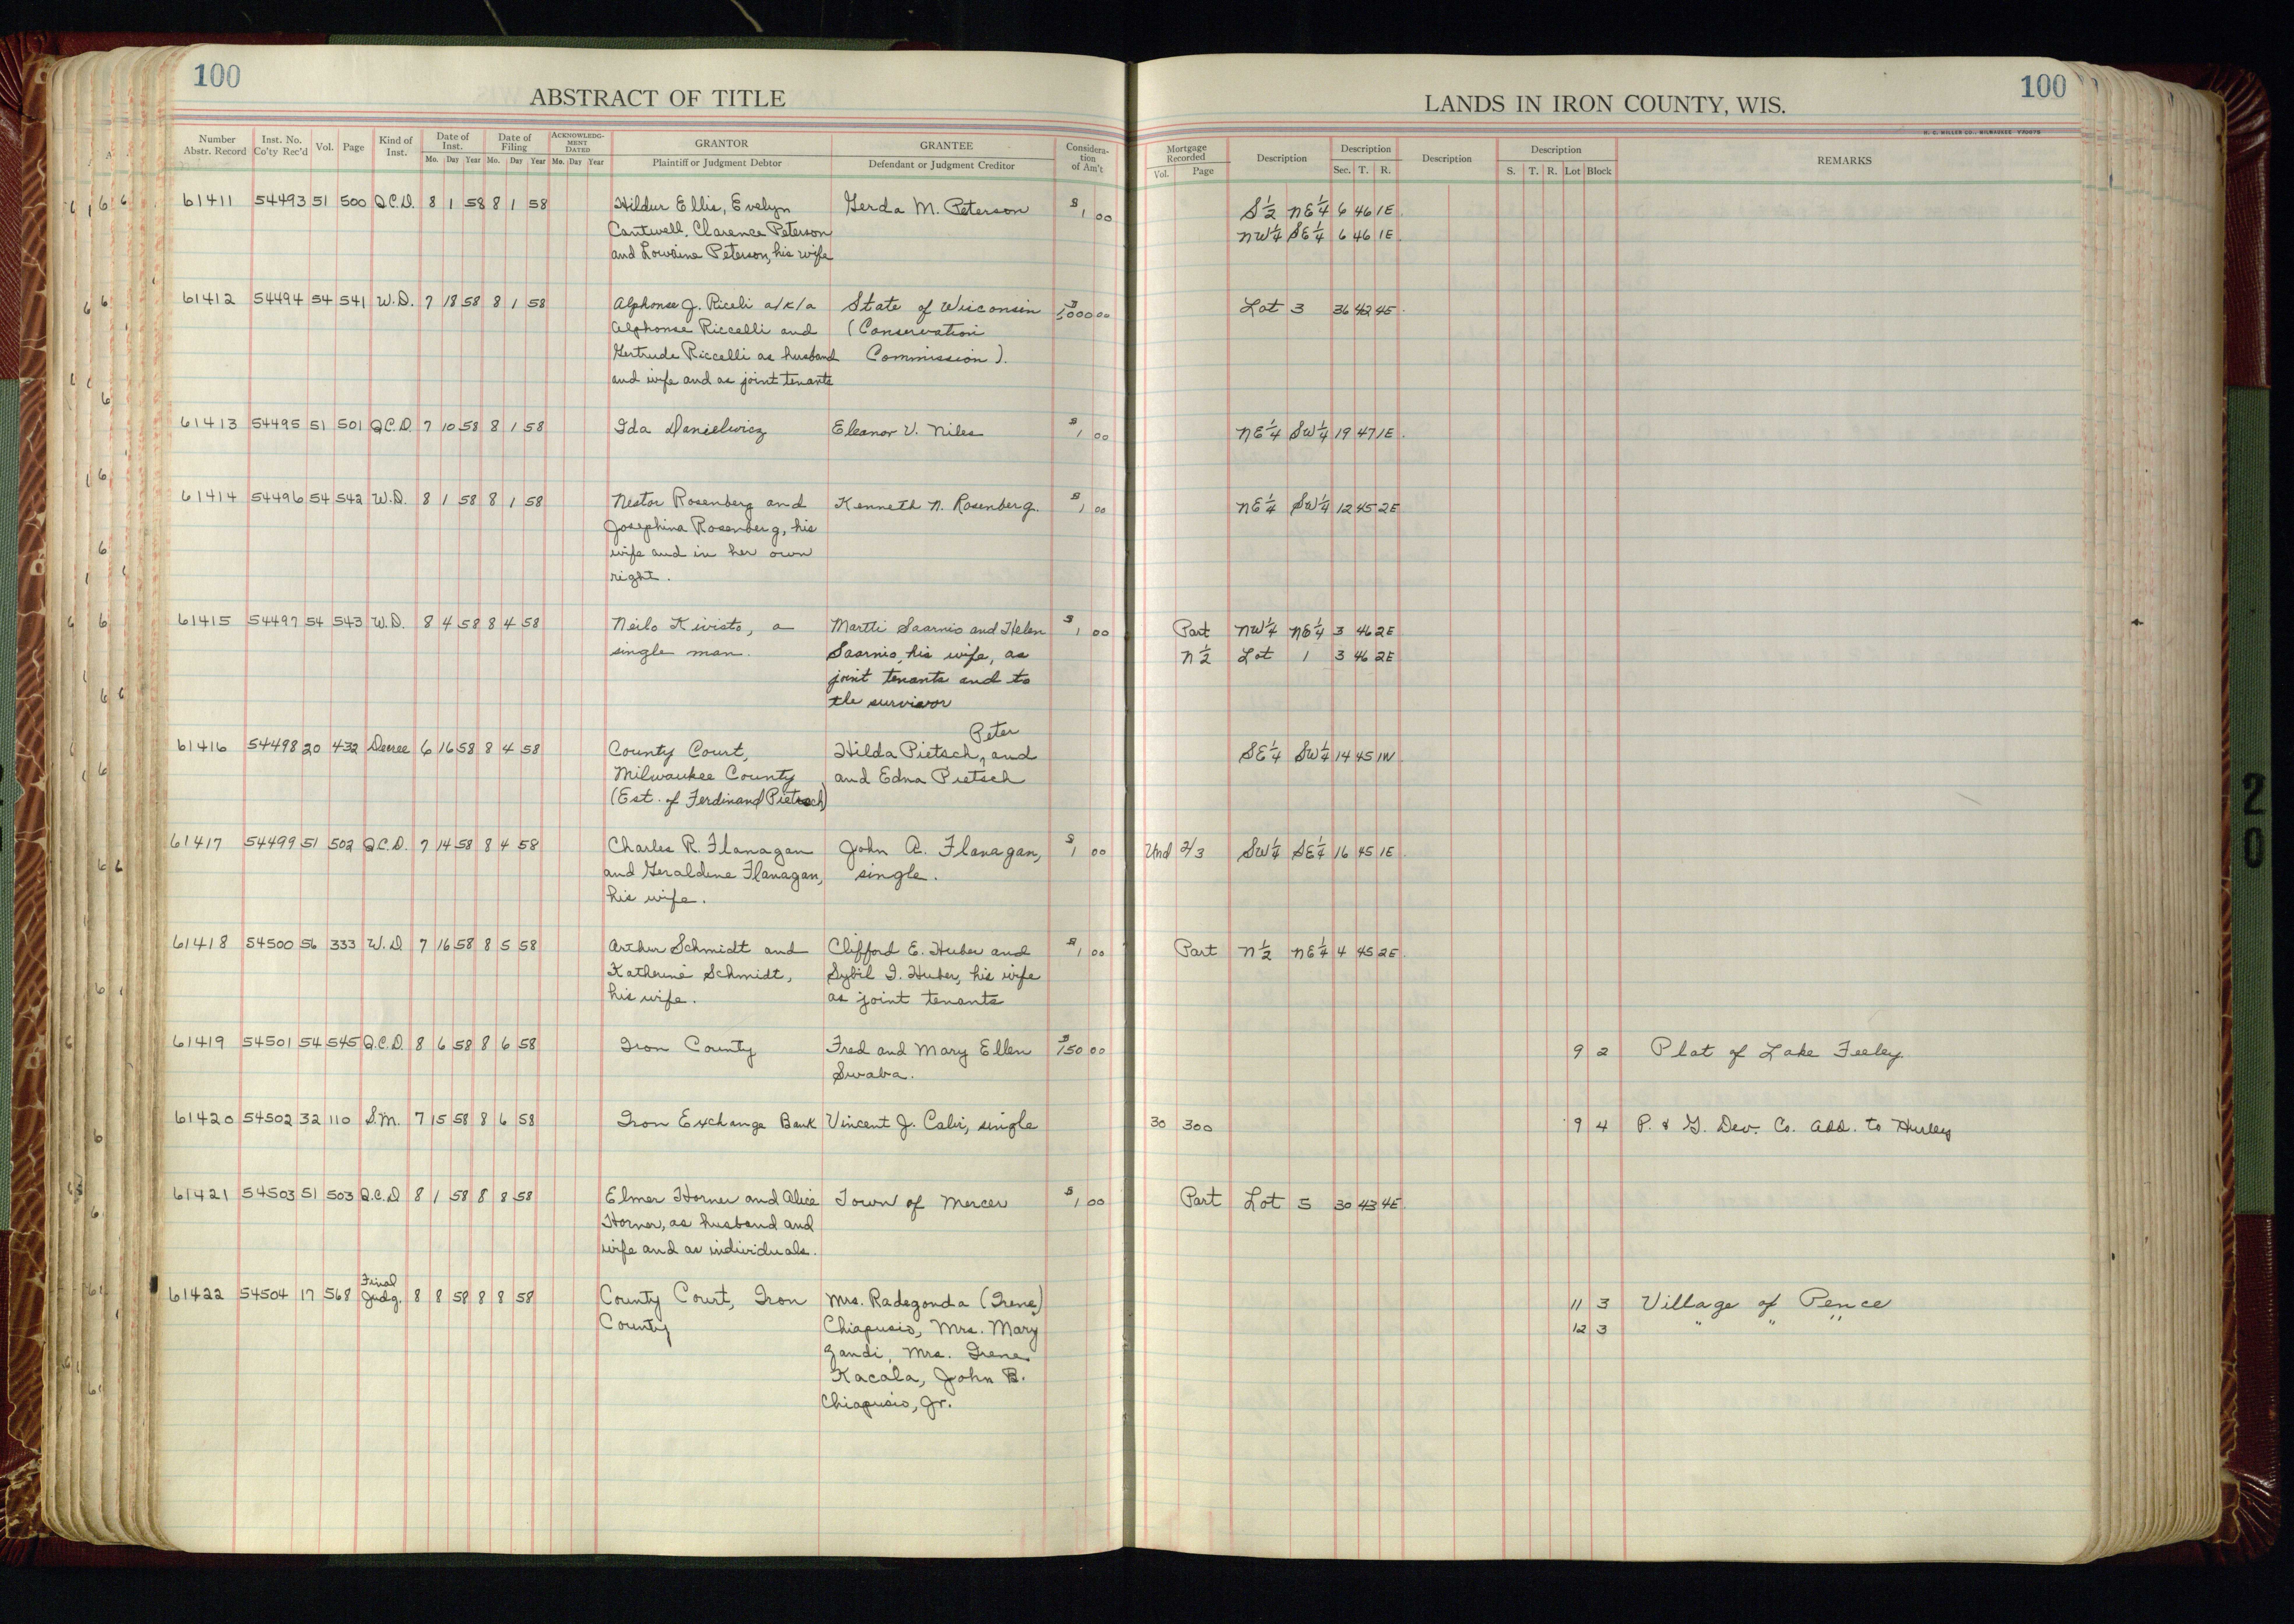 100
ABSTRACT OF TITLE
Number Abstr. Record Inst. No. Co'ty Rec'd Vol. Page Kind of Inst. Date of Inst. Mo. Day Year Date of Filing Mo. Day Year ACKNOWLEDGMENT DATED Mo. Day Year GRANTOR Plaintiff or Judgment Debtor GRANTEE Defendant or Judgment Creditor Consideration of Am't
61411 54493 51 500 Q.C.D. 8 1 58 8 1 58 Hildur Ellis, Evelyn Gerda M. Peterson $1 00
Cantwell, Clarence Peterson
and Lorraine Peterson, his wife
61412 54494 54 541 W.D. 7 18 58 8 1 58 Alphonse J. Riceli a/k/a State of Wisconsin $1,000 00
Alphonse Riccelli and (Conservation
Gertrude Riccelli as husband Commission).
and wife and as joint tenants
61413 54495 51 501 Q.C.D. 7 10 58 8 1 58 Ida Danielwicz Eleanor V. Niles $1 00
61414 54496 54 542 W.D. 8 1 58 8 1 58 Nestor Rosenberg and Kenneth N. Rosenberg. $1 00
Josephina Rosenberg, his
wife and in her own
right.
61415 54497 54 543 W.D. 8 4 58 8 4 58 Neilo Kivisto, a Martti Saarnio and Helen $1 00
single man. Saarnio, his wife, as
joint tenants and to
the survivor
Peter
61416 54498 20 432 Decree 6 16 58 8 4 58 County Court, Hilda Pietsch, and
Milwaukee County and Edna Pietsch
(Est. of Ferdinand Pietsch)
61417 54499 51 502 Q.C.D. 7 14 58 8 4 58 Charles R. Flanagan John A. Flanagan, $1 00
and Geraldine Flanagan, single.
his wife.
61418 54500 56 333 W.D 7 16 58 8 5 58 Arthur Schmidt and Clifford E. Huber and $1 00
Katherine Schmidt, Sybil I. Huber, his wife
his wife. as joint tenants
61419 54501 54 545 Q.C.D. 8 6 58 8 6 58 Iron County Fred and Mary Ellen $150 00
Swaba.
61420 54502 32 110 S.M. 7 15 58 8 6 58 Iron Exchange Bank Vincent J. Calvi, single
61421 54503 51 503 Q.C.D 8 1 58 8 8 58 Elmer Horner and Alice Town of Mercer $1 00
Horner, as husband and
wife and as individuals.
Final
61422 54504 17 568 Judg. 8 8 58 8 8 58 County Court, Iron Mrs. Radegonda (Irene)
County Chiapusio, Mrs. Mary
Zandi, Mrs. Irene
Kacala, John B.
Chiapusio, Jr.
100
LANDS IN IRON COUNTY, WIS.
H. C. MILLER CO., MILWAUKEE
Mortgage Recorded Vol. Page Description Description Sec. T. R. Description Description S. T. R. Lot Block REMARKS
S½ NE¼ 6 46 1E
NW¼ SE¼ 6 46 1E
Lot 3 36 42 4E
NE¼ SW¼ 19 47 1E
NE¼ SW¼ 12 45 2E
Part NW¼ NE¼ 3 46 2E
N½ Lot 1 3 46 2E
SE¼ SW¼ 14 45 1W
Und 2/3 SW¼ SE¼ 16 45 1E
Part N½ NE¼ 4 45 2E
9 2 Plat of Lake Feeley
30 300 9 4 P. & G. Dev. Co. Add. to Hurley
Part Lot 5 30 43 4E
11 3 Village of Pence
12 3 " " "
20